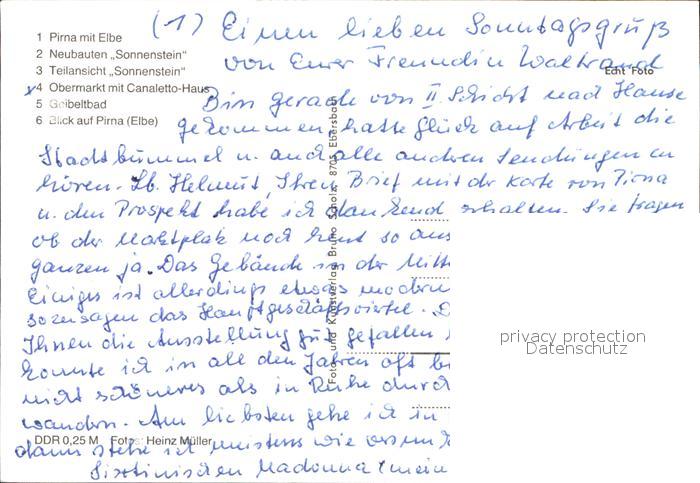 (1) Einen lieben Sonntagsgruß
1 Pirna mit Elbe
2 Neubauten „Sonnenstein"
von Eurer Freundin Waltraud
3 Teilansicht „Sonnenstein"
Echt Foto
x4 Obermarkt mit Canaletto-Haus
Bin gerade von II. Schicht nach Hause
5 Geibeltbad
6 Blick auf Pirna (Elbe)
gekommen, hatte Glück auf Arbeit die
Stadtbummel u. auch alle anderen Sendungen zu
hören. Lb. Helmut, Ihren Brief mit der Karte von Pirna
u. den Prospekt habe ich dankend erhalten. Sie fragen
ob der Marktplatz noch heut so aus
ganzen ja. Das Gebäude in der Mitte
Einiges ist allerdings etwas modern
sozusagen das Hauptgeschäftsviertel. D
Ihnen die Ausstellung gut gefallen
konnte ich in all den Jahren oft be
nicht schöneres als in Ruhe durch
wandern. Am liebsten gehe ich in
DDR 0,25 M Fotos: Heinz Müller
dann stehe ich meistens wie
Sixtinischen Madonna (mein
Foto- und Kunstverlag Bruno Scholz, 8705 Ebersbach
privacy protection
Datenschutz